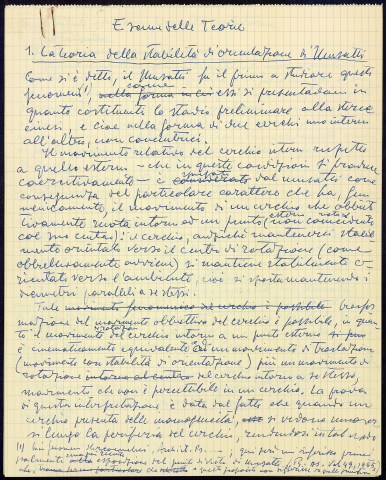 Esame delle Teorie
1. La teoria della stabilità di orientazione di Musatti
Come si è detto, il Musatti fu il primo a studiare questi
fenomeni¹⁾, nella forma in cui essi si presentano in
quanto costituente lo stadio preliminare alla stereo
cinesi, e cioè nella forma di due cerchi uno interno
all'altro, non concentrici.
Il movimento relativo del cerchio interno rispetto
a quello esterno - che in queste condizioni si produce
coercitivamente - è dal Musatti come
conseguenza del particolare carattere che ha, feno
menicamente, il movimento di un cerchio che obbiet
tivamente ruota intorno ad un punto (esterno non coincidente
col suo centro): il cerchio anzichè mantenersi stabil
mente orientato verso il centro di rotazione (come
obbiettivamente avviene) si mantiene stabilmente o
rientato verso l'ambiente, cioè si sposta mantenendo i
diametri paralleli a se stessi.
Tale movimento fenomenico del cerchio è possibile trasfor
mazione del movimento obbiettivo del cerchio è possibile, in quan
to il movimento di rotazione del cerchio intorno a un punto esterno
è cinematicamente equivalente ad un movimento di traslazione
(movimento con stabilità di orientazione) più un movimento di
rotazione intorno al centro del cerchio intorno a se stesso,
movimento che non è percettibile in un cerchio. La prova
di questa interpretazione è data dal fatto che quando un
cerchio presenta delle disomogeneità, si vedono muover
si lungo la periferia del cerchio, rendendosi in tal modo
(1) Sui fenomeni stereocinetici, Archit. Ps. ... qui però mi riferirò princi
palmente alla esposizione del punto di vista di Musatti, Riv. Ps. Vol 49, 1955,